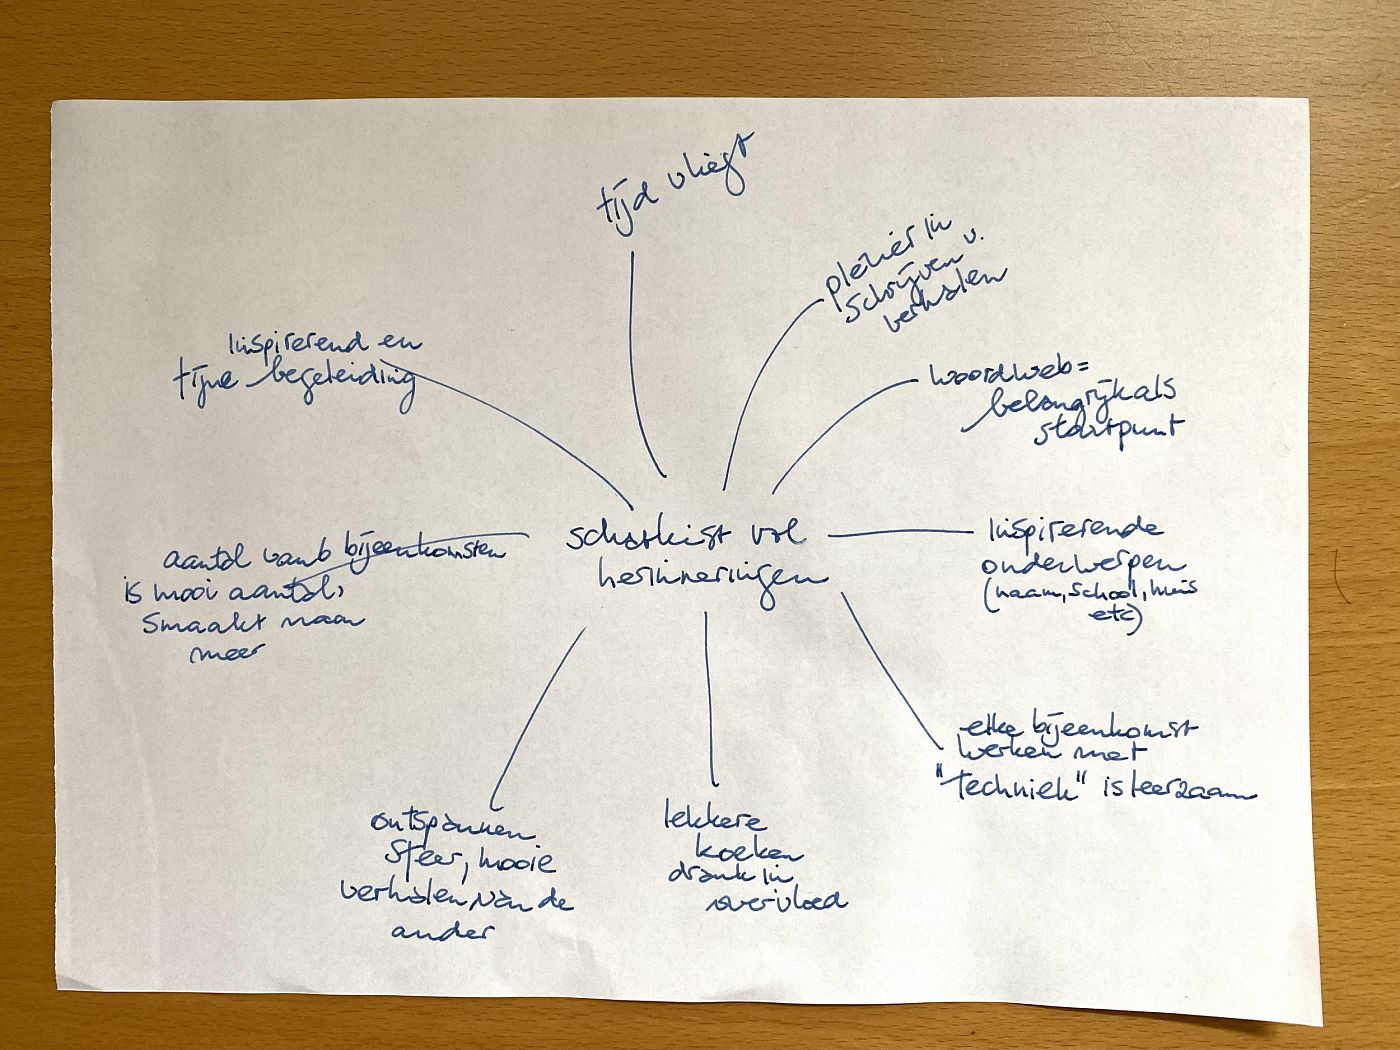 tijd vliegt
plezier in
schrijven v.
verhalen
woordweb=
belangrijk als
startpunt
inspirerende
onderwerpen
(naam, school, huis
etc)
elke bijeenkomst
werken met
"techniek" is leerzaam
lekkere
koeken
drank in
overvloed
ontspannen
sfeer, mooie
verhalen van de
ander
aantal van bijeenkomsten
is mooi aantal,
smaakt naar
meer
inspirerend en
fijne begeleiding
schatkist vol
herinneringen